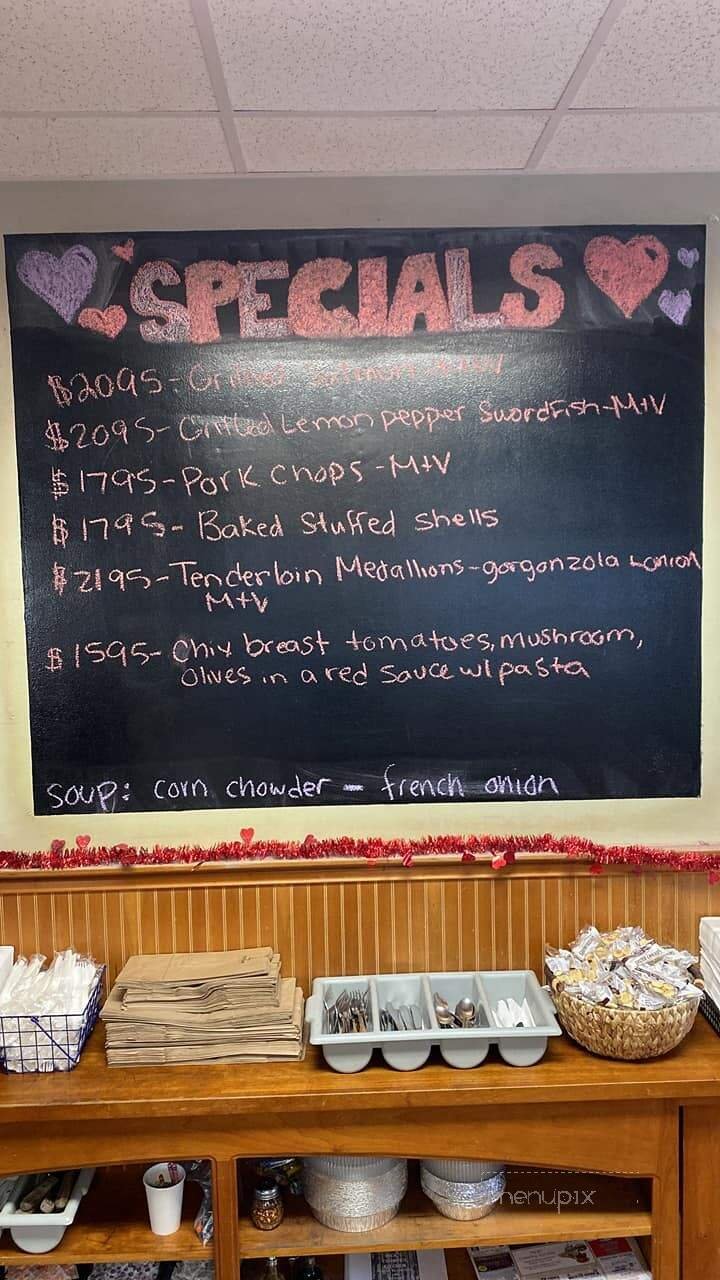 SPECIALS
$2095- Grilled Salmon M+V
$2095- Grilled Lemon pepper Swordfish-M+V
$1795- Pork Chops - M+V
$1795- Baked Stuffed Shells
$2195- Tenderloin Medallions-gorgonzola + onion
M+V
$1595- Chix breast tomatoes, mushroom,
Olives in a red sauce w/ pasta
soup: corn chowder - french onion
menupix